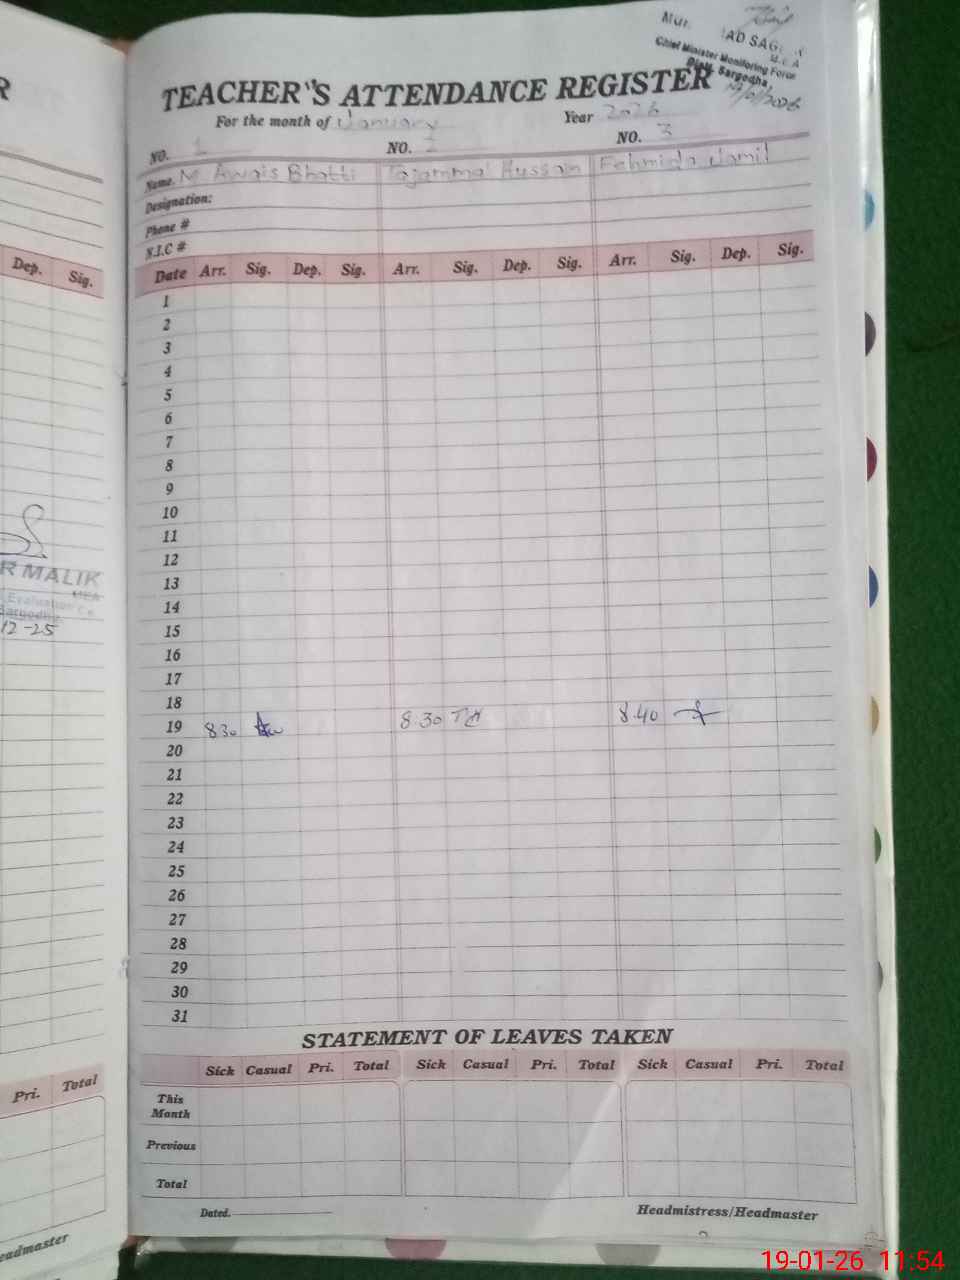 Mur. AD SAG
M.E.A
Chief Minister Monitoring Force
Distt. Sargodha
TEACHER'S ATTENDANCE REGISTER
For the month of January Year 2026
NO. 1 NO. 2 NO. 3
Name. M Awais Bhatti Tajammal Hussain Fehmida Jamil
Designation:
Phone #
N.I.C #
Date Arr. Sig. Dep. Sig. Arr. Sig. Dep. Sig. Arr. Sig. Dep. Sig.
1
2
3
4
5
6
7
8
9
10
11
12
13
14
15
16
17
18
19 830 8.30 TH 8.40
20
21
22
23
24
25
26
27
28
29
30
31
STATEMENT OF LEAVES TAKEN
Sick Casual Pri. Total Sick Casual Pri. Total Sick Casual Pri. Total
This Month
Previous
Total
Dated. Headmistress/Headmaster
R
Dep. Sig.
R MALIK
MEA
Evaluation
Sargodha
12-25
Pri. Total
eadmaster
19-01-26 11:54